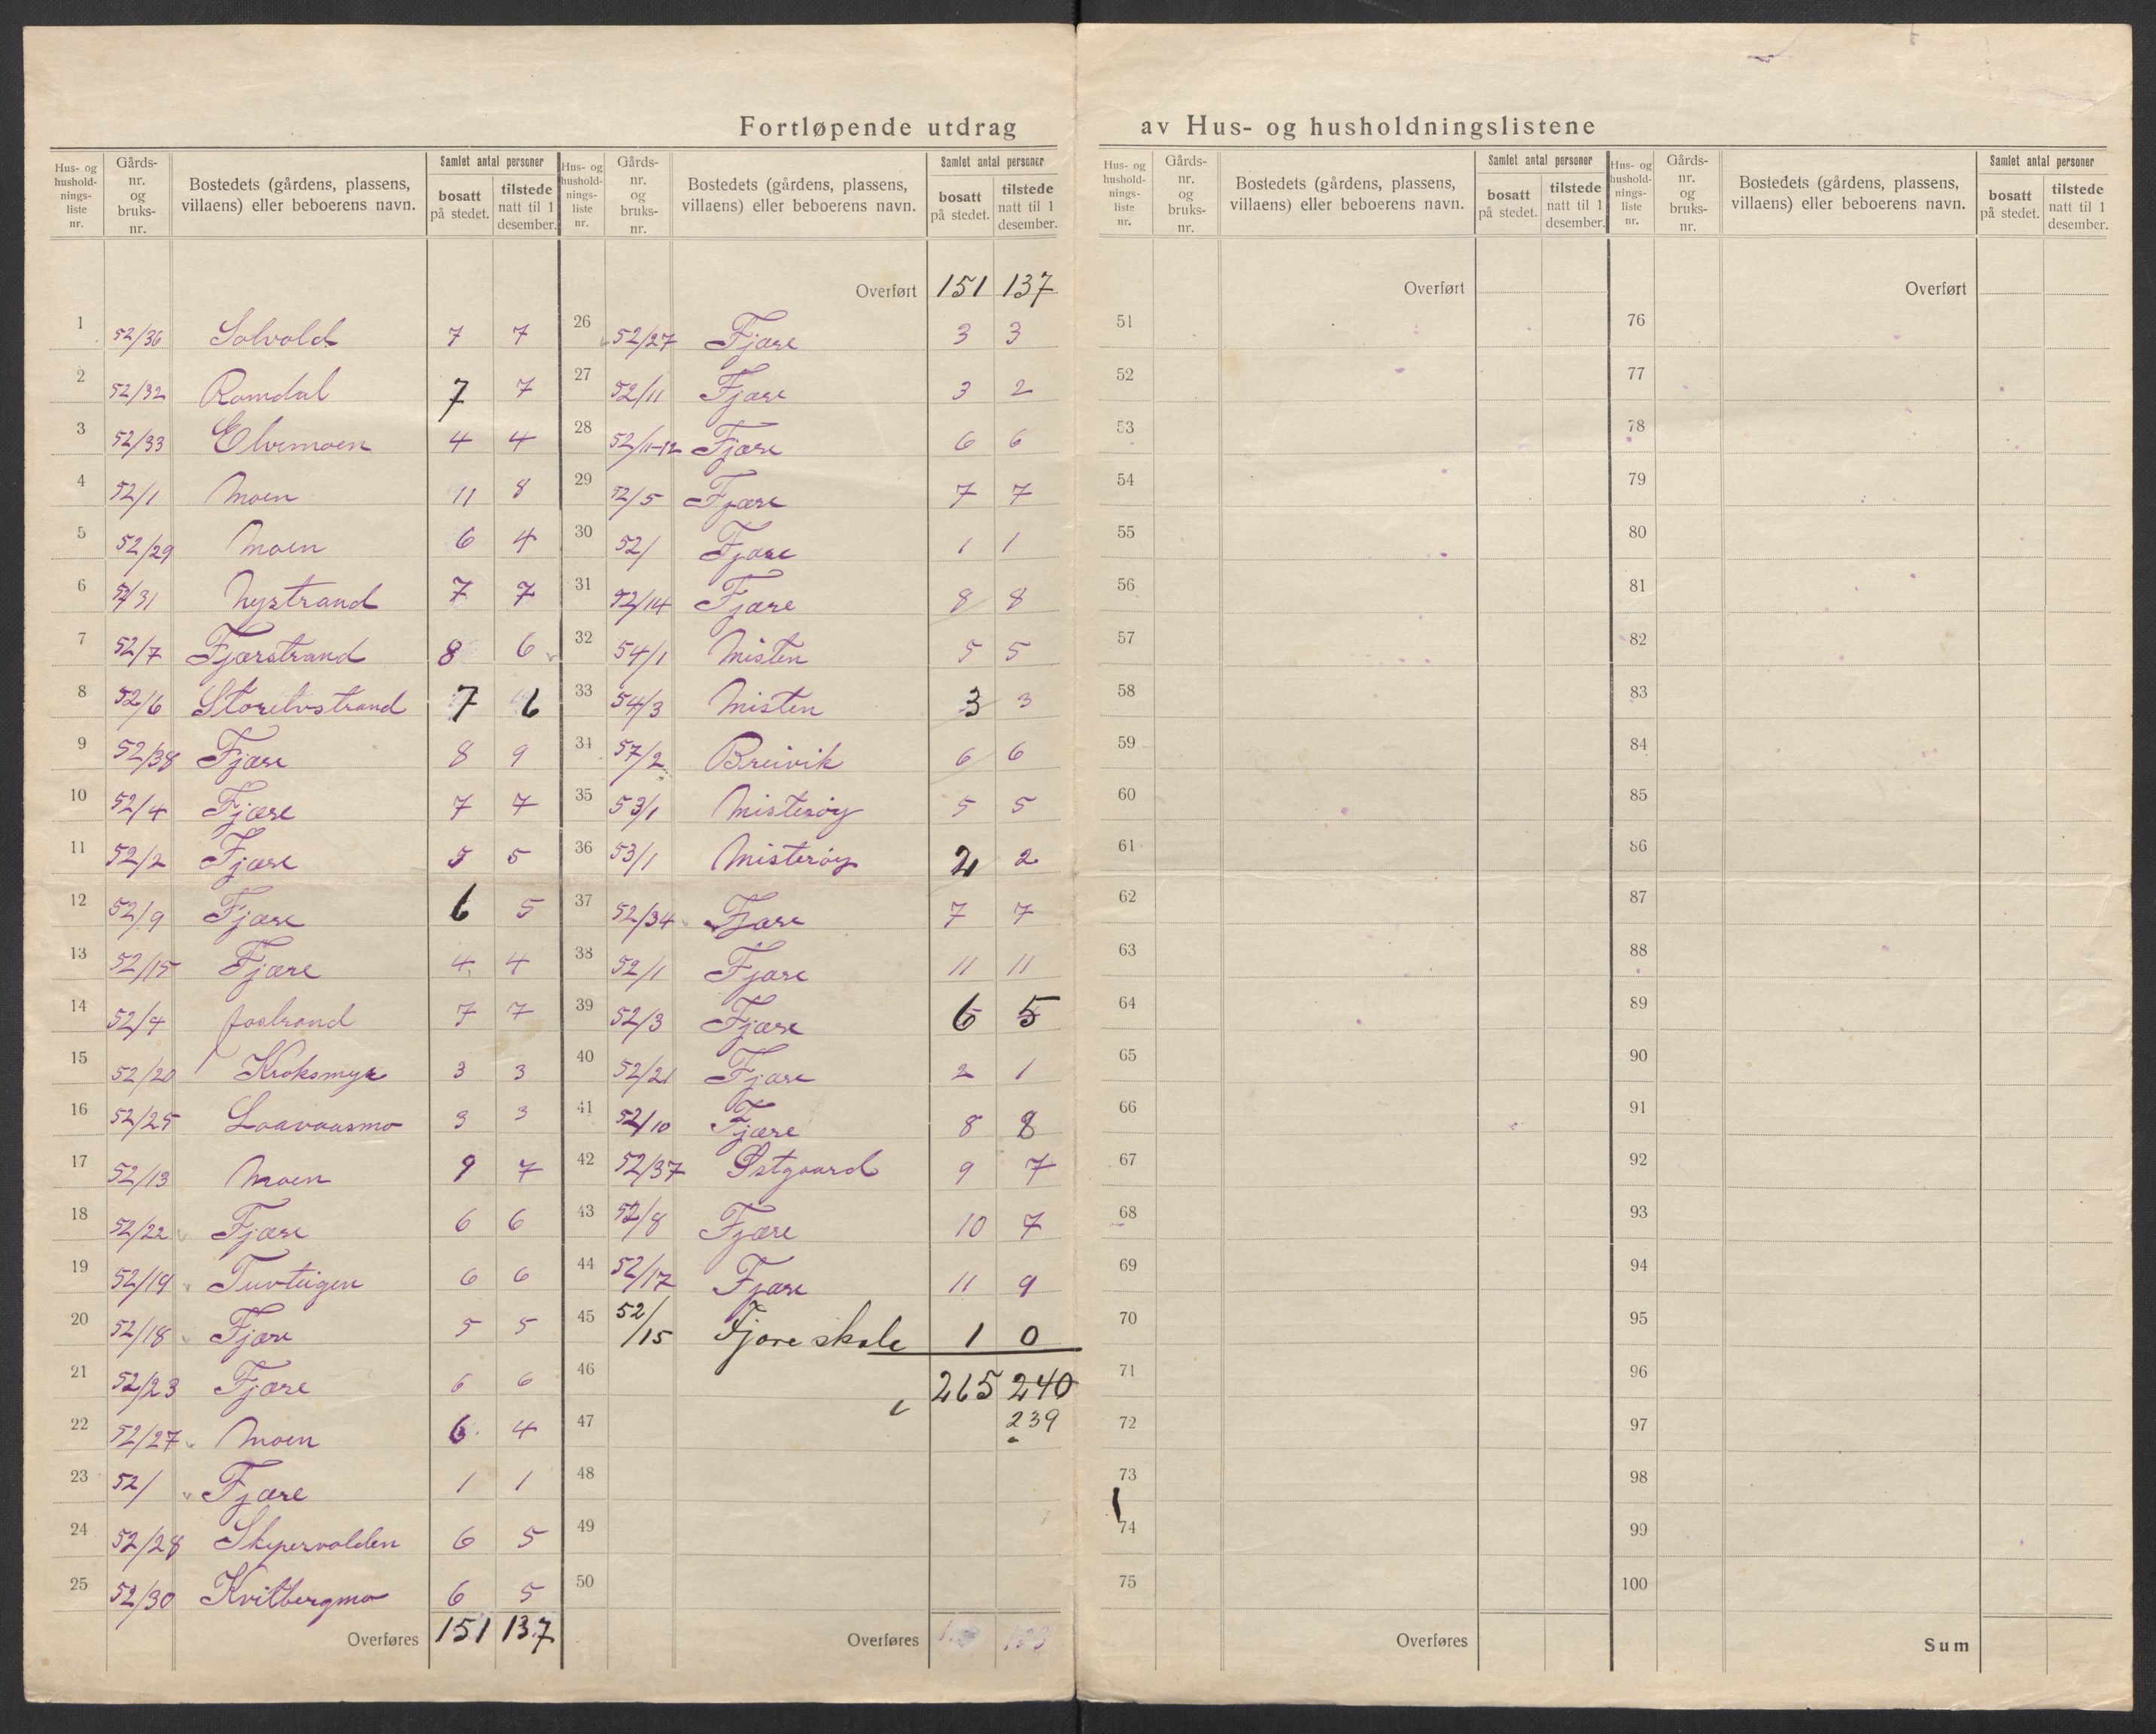 Fortløpende utdrag av Hus- og husholdningslistene
Hus- og husholdnings-liste nr. | Gårds-nr. og bruks-nr. | Bostedets (gårdens, plassens, villaens) eller beboerens navn. | Samlet antal personer: bosatt på stedet. | tilstede natt til 1 desember.
1 52/36 Solvold 7 7
2 52/32 Romdal 7 7
3 52/33 Elvemoen 4 4
4 52/1 Moen 11 8
5 52/29 Moen 6 4
6 52/31 Nystrand 7 7
7 52/7 Fjærstrand 8 6
8 52/6 Storelvstrand 7 6
9 52/38 Fjære 8 9
10 52/4 Fjære 7 7
11 52/2 Fjære 5 5
12 52/9 Fjære 6 5
13 52/15 Fjære 4 4
14 52/4 7 7
15 52/20 Kroksmyr 3 3
16 52/25 Laavaasmo 3 3
17 52/13 Moen 9 7
18 52/22 Fjære 6 6
19 52/19 Tuvteigen 6 6
20 52/18 Fjære 5 5
21 52/23 Fjære 6 6
22 52/27 Moen 6 4
23 52/ Fjære 1 1
24 52/28 Skipervolden 6 5
25 52/30 Kvitbergmo 6 5
Overføres 151 137
Hus- og husholdnings-liste nr. | Gårds-nr. og bruks-nr. | Bostedets (gårdens, plassens, villaens) eller beboerens navn. | Samlet antal personer: bosatt på stedet. | tilstede natt til 1 desember.
Overført 151 137
26 52/27 Fjære 3 3
27 52/11 Fjære 3 2
28 52/11-12 Fjære 6 6
29 52/5 Fjære 7 7
30 52/ Fjære 1 1
31 52/14 Fjære 8 8
32 54/1 Misten 5 5
33 54/3 Misten 3 3
34 57/2 Breivik 6 6
35 53/1 Misterøy 5 5
36 53/1 Misterøy 2 2
37 52/34 Fjære 7 7
38 52/1 Fjære 11 11
39 52/3 Fjære 6 5
40 52/21 Fjære 2 1
41 52/10 Fjære 8 8
42 52/37 Østgaard 9 7
43 52/8 Fjære 10 7
44 52/17 Fjære 11 9
45 52/15 Fjære skole 1 0
46 265 240
47 239
48
49
50
Overføres
Hus- og husholdnings-liste nr. | Gårds-nr. og bruks-nr. | Bostedets (gårdens, plassens, villaens) eller beboerens navn. | Samlet antal personer: bosatt på stedet. | tilstede natt til 1 desember.
Overført
51
52
53
54
55
56
57
58
59
60
61
62
63
64
65
66
67
68
69
70
71
72
73
74
75
Overføres
Hus- og husholdnings-liste nr. | Gårds-nr. og bruks-nr. | Bostedets (gårdens, plassens, villaens) eller beboerens navn. | Samlet antal personer: bosatt på stedet. | tilstede natt til 1 desember.
Overført
76
77
78
79
80
81
82
83
84
85
86
87
88
89
90
91
92
93
94
95
96
97
98
99
100
Sum